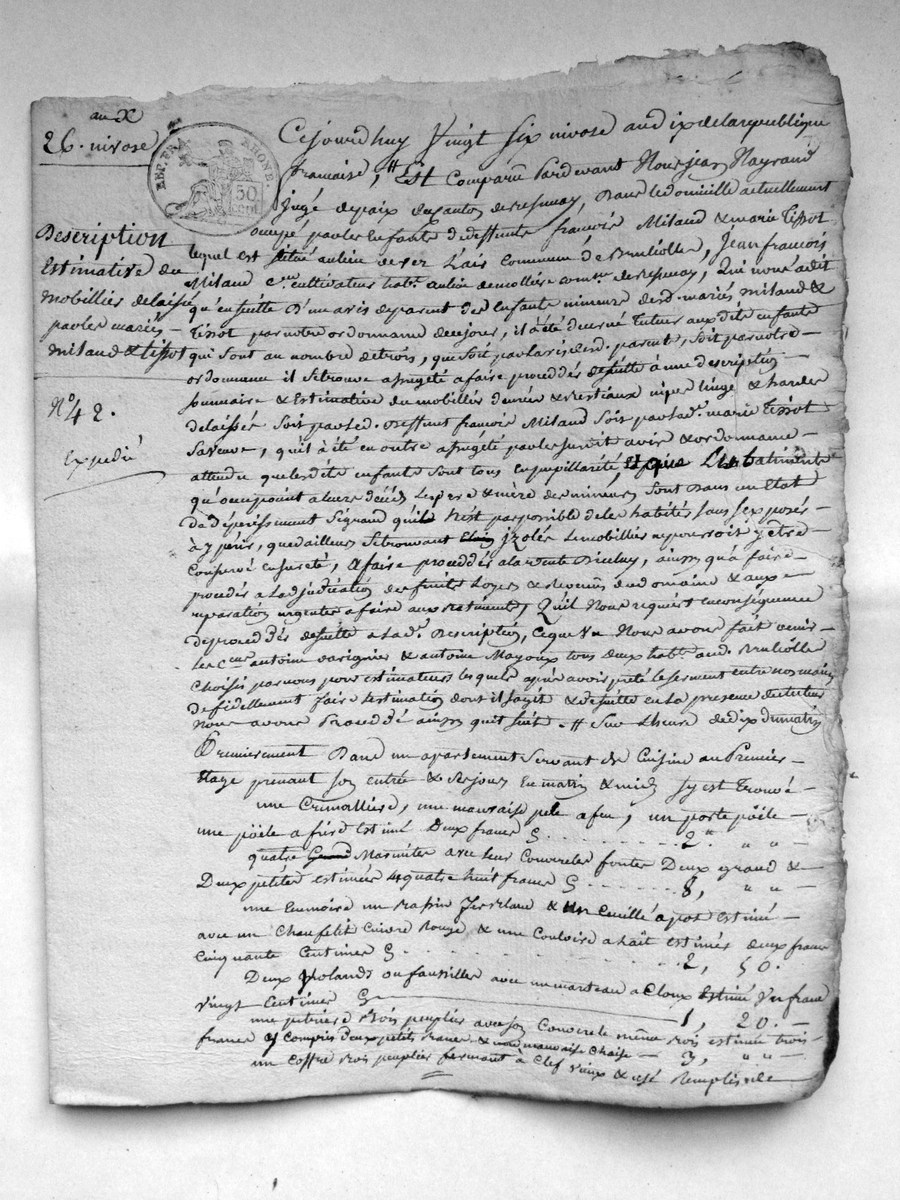 an X
26. nivose
REP. FRA
RHONE.
50
Description
Estimative du
mobillier délaissé
par les mariés
milaud & tissot
No. 42.
Expedié
Cejourd'huy Vingt Six nivose an dix de la republique
francaise, Est Comparu pardevant Nous jean Mayrand
juge de paix du canton de , Dans le domicille actuellement
occupé par les Enfants de deffunts francois Milaud & marie Tissot
lequel est situé au lieu de Commune de Brulliolle, Jean francois
Milaud cen. cultivateur habt. au lieu de mollière comne. de , Qui nous a dit
qu'ensuitte D'un avis de parent des Enfants mineurs desd. mariés milaud &
Tissot par notre ordonnance de ce jour, il a été decerné Tuteur aux dits enfants
qui sont au nombre de trois, que soit par l'avis desd. parents, soit par notre
ordonnance il se trouve assujeté a faire proceddés de suitte a une description
sommaire & Estimative du mobillier denrées & Bestiaux nipes linge & hardes
délaissés Soit par led. Deffunt francois Milaud Soit par lad. marie Tissot
sa veuve, qu'il a été en outre assujeté par les susdit avis & ordonnance
attendu que lesdits enfants sont tous en pupillarité, Et que Les batiments
qu'occupoient a leurs décés les pere & mère des mineurs sont Dans un Etat
de déperissement Si grand qu'il n'est pas possible de les habités sans s'exposés
à y périr, que d'ailleurs se trouvant izolés le mobillier ne pourroit y être
conservé en sureté, a faire proceddés a la vente D'icelluy, ainsy qu'a faire
procedés a l'adjudication des fruits Loyers & Revenus du domaine & aux
reparations urgentes a faire aux Batiments, Qu'il Nous requiert en conséquence
de proceddés de suitte a lad. Description, Ce que Vu Nous avons fait venir
les cens antoine varignier & antoine Mayoux tous deux habt. aud. Brulliolle
choisis par nous pour estimateurs lesquels après avoir prêté le serment entre nos mains
de fidellement faire l'estimation dont il s'agit & de suitte en la presence du tuteur
Nous avons Proceddé ainsy qu'il suit. Sur L'heure de dix du matin
Premierement Dans un apartement servant de Cuisine au Premier
Etage prenant son entrée & ses jours En matin & midy s'y est Trouvé
une Crimallière, une mauvaise pele a feu, un porte pöële
une pöële a frire Estimé Deux francs 2 " "
quatre Marmites avec leur Couvercles fontes Deux grand &
Deux petites estimées 4 quatre huit francs 8, " "
une un Bassin & un Cueillé a pot estimé
avec un Chaufelit Cuivre Rouge & une Couloire a lait estimés deux francs
Cinquante Centimes 2, 50.
Deux Volands ou faucilles avec un marteau a Cloux Estimé Un franc
Vingt Centimes 1, 20.
une petrière Bois peuplier avec son Couvercle même Bois estimée trois
francs y compris Deux petits Bancs & une mauvaise Chaise 3, " "
un coffre Bois peuplier fermant à Clef Vieux & usé Remplis de